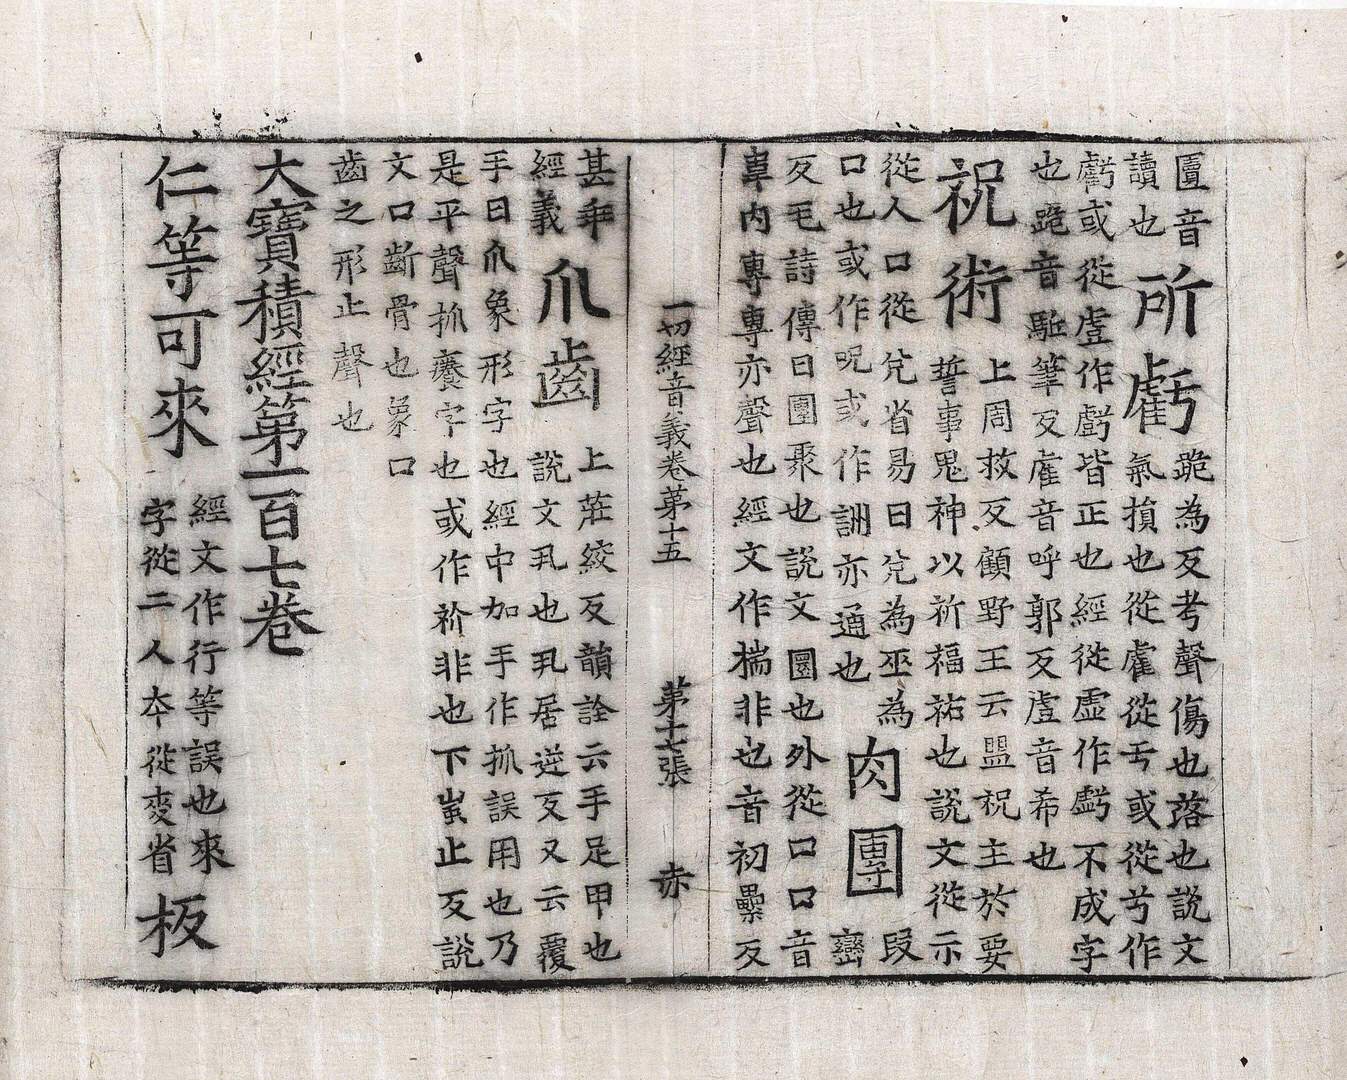 匵音
讀也
所虧
跪為反考聲傷也落也說文
氣損也從雐從亐或從兮作
虧或從虗作虧皆正也經從虛作虧不成字
也跪音駈箠反雐音呼郭反虗音希也
祝術
上周救反顧野王云盟祝主於要
誓事鬼神以祈福祐也說文從示
從人口從兊省易曰兊為巫為
口也或作呪或作詶亦通也
肉團
段
巒
反毛詩傳曰團聚也說文圜也外從囗囗音
韋內專專亦聲也經文作揣非也音初壘反
一切經音義卷第十五 第十七張 赤
甚乖
經義
爪齒
上莊絞反韻詮云手足甲也
說文丮也丮居逆反又云覆
手曰爪象形字也經中加手作抓誤用也乃
是平聲抓癢字也或作非也下蚩止反說
文口斷骨也象口
齒之形止聲也
大寶積經第一百七卷
仁等可來
經文作行等誤也來
字從二人夲從麥省
板